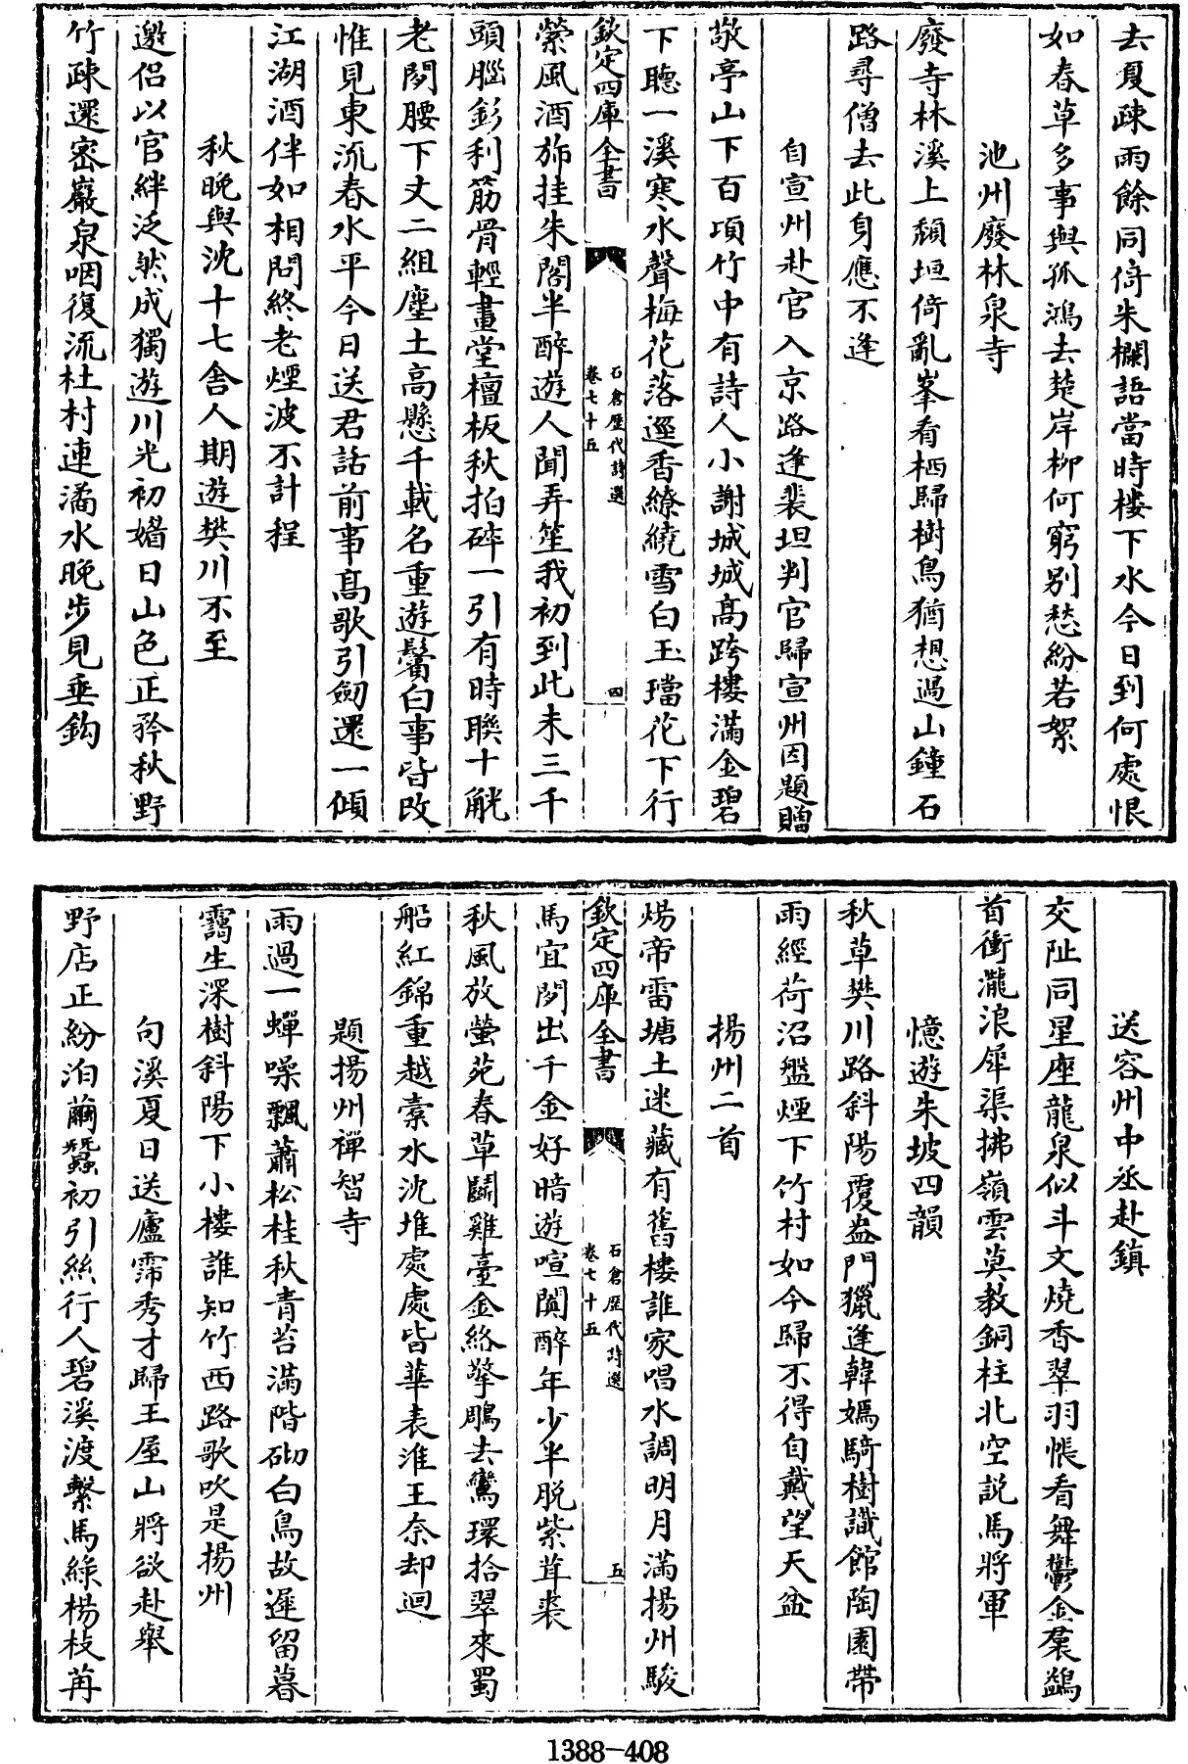 去夏疎雨餘同倚朱欄語當時樓下水今日到何處恨
如春草多事與孤鴻去楚岸柳何窮别愁紛若絮
池州廢林泉寺
廢寺林溪上頽垣倚亂峯看栖歸樹鳥猶想過山鐘石
路尋僧去此身應不逢
自宣州赴官入京路逢裴坦判官歸宣州因題贈
敬亭山下百頃竹中有詩人小謝城城高跨樓滿金碧
下聽一溪寒水聲梅花落逕香繚繞雪白玉璫花下行
欽定四庫全書
石倉歷代詩選
卷七十五
四
縈風酒斾挂朱閣半醉遊人聞弄笙我初到此未三千
頭腦釤利筋骨輕畫堂檀板秋拍碎一引有時聨十觥
老閲腰下丈二組塵土高懸千載名重遊鬢白事皆改
惟見東流春水平今日送君話前事髙歌引劒還一傾
江湖酒伴如相問終老煙波不計程
秋晚與沈十七舍人期遊樊川不至
邀侣以官絆泛然成獨遊川光初媚日山色正矜秋野
竹疎還密巖泉咽復流杜村連潏水晚步見垂鈎
送容州中丞赴鎮
交阯同星座龍泉似斗文燒香翠羽帳看舞鬱金裠鷁
首衝瀧浪犀渠拂嶺雲莫教銅柱北空説馬將軍
憶遊朱坡四韻
秋草樊川路斜陽覆盎門獵逢韓嫣騎樹識館陶園帶
雨經荷沼盤煙下竹村如今歸不得自戴望天盆
揚州二首
煬帝雷塘土迷藏有舊樓誰家唱水調明月滿揚州駿
欽定四庫全書
石倉歷代詩選
卷七十五
五
馬宜閙出千金好暗遊喧闐醉年少半脱紫茸裘
秋風放螢苑春草鬭雞臺金絡擎鵰去鸞環拾翠來蜀
船紅錦重越橐水沈堆處處皆華表淮王奈却迴
題揚州禪智寺
雨過一蟬噪飄蕭松桂秋青苔滿階砌白鳥故遲留暮
靄生深樹斜陽下小樓誰知竹西路歌吹是揚州
句溪夏日送盧霈秀才歸王屋山將欲赴舉
野店正紛泊繭蠶初引絲行人碧溪渡繫馬緑楊枝苒
1388-408